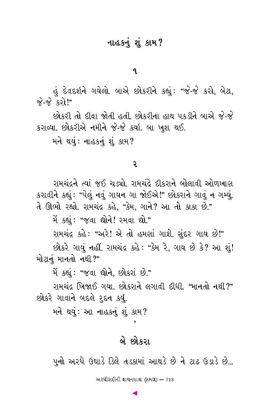 નાહકનું શું કામ?
૧
હું દેવદર્શને ગયેલો. બાએ છોકરીને કહ્યું: "જે-જે કરો, બેટા,
જે-જે કરો!"
છોકરી તો દીવા જોતી હતી. છોકરીના હાથ પકડીને બાએ જે-જે
કરાવ્યા. છોકરીએ નમીને જે-જે કર્યા. બા ખુશ થઈ.
મને થયું: નાહકનું શું કામ?
૨
રામચંદ્રને ત્યાં જઈ ચડ્યો. રામચંદ્રે દીકરાને બોલાવી ઓળખાણ
કરાવીને કહ્યું: "પેલું નવું ગાયન ગા જોઈએ!" છોકરાને ગાવું ન ગમ્યું.
તે ઊભો રહ્યો. રામચંદ્ર કહે, "કેમ, ગાને? આ તો કાકા છે."
મેં કહ્યું: "જવા દ્યોને! રમવા દ્યો."
રામચંદ્ર કહે: "અરે! એ તો હમણાં ગાશે. સુંદર ગાય છે!"
છોકરે ગાયું નહીં. રામચંદ્ર કહે: "કેમ રે, ગાય છે કે? આ શું!
મોટાનું માનતો નથી?"
મેં કહ્યું: "જવા દ્યોને, છોકરાં છે."
રામચંદ્ર ખિજાઈ ગયા. છોકરાને લગાવી દીધી. "માનતો નથી?"
છોકરે ગાવાને બદલે રુદન કર્યું.
મને થયું: આ નાહકનું શું કામ?
*
બે છોકરા
પુનો અરધે ઉઘાડે ડિલે તડકામાં આથડે છે ને ટાઢ ઉડાડે છે...